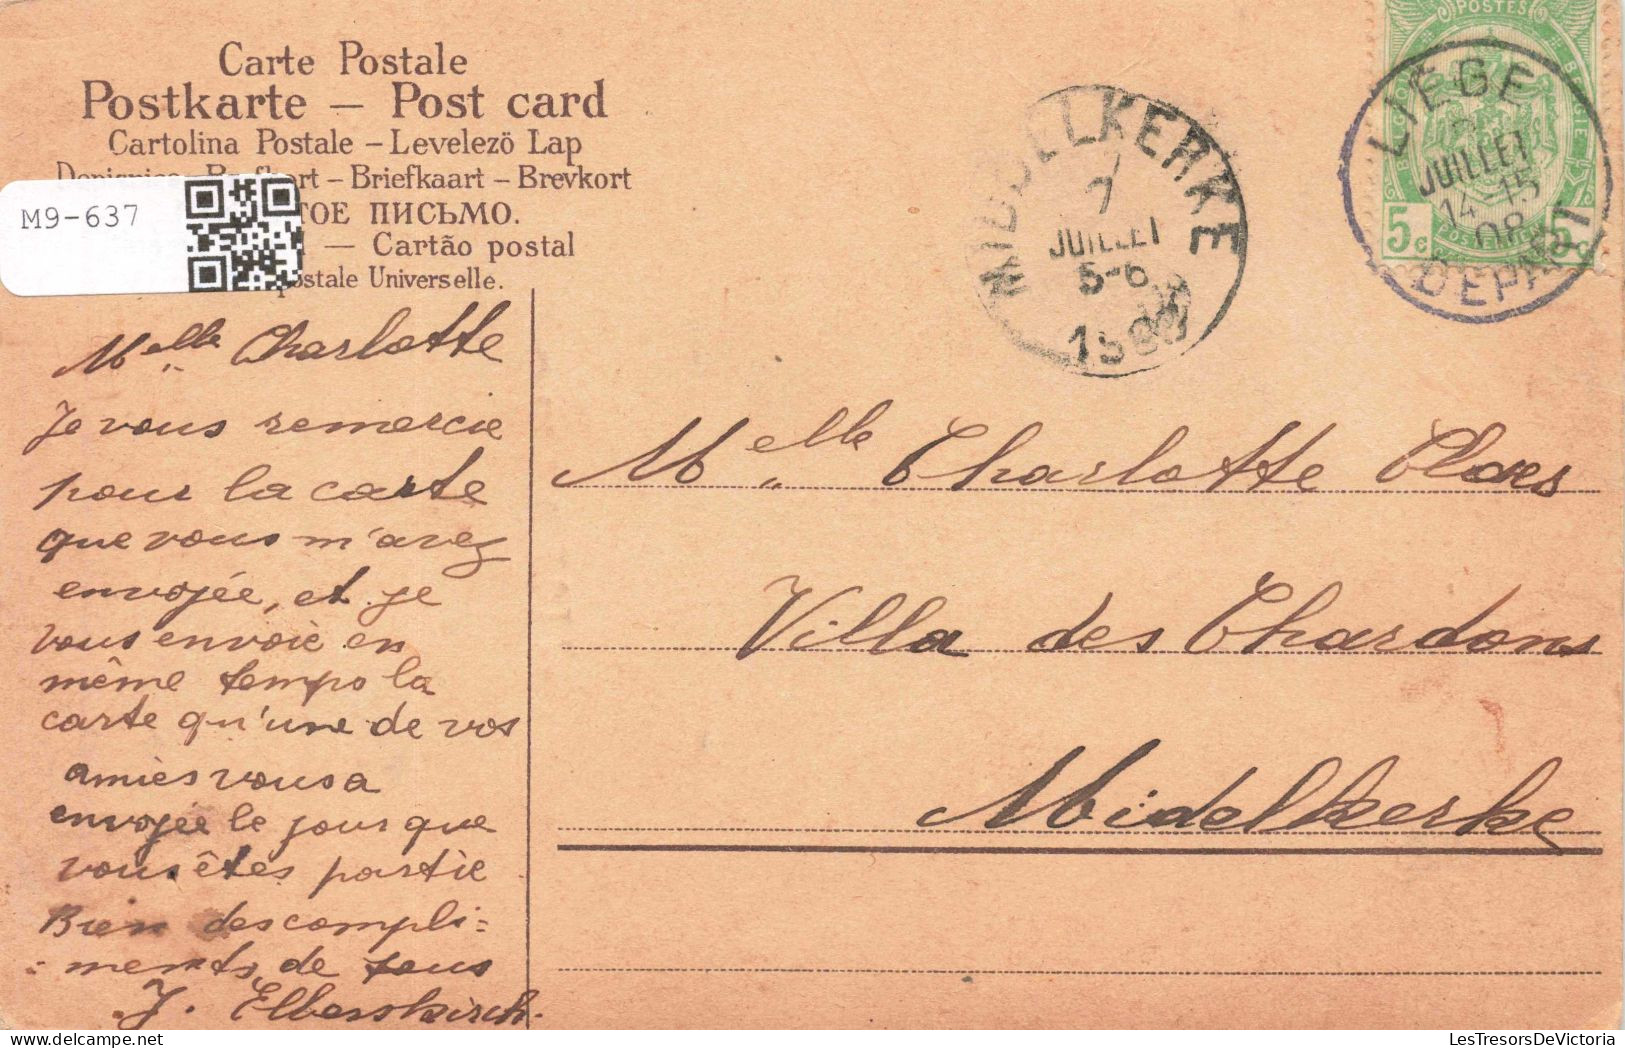 Carte Postale
Postkarte — Post card
Cartolina Postale – Levelezö Lap
– Briefkaart – Brevkort
ТОЕ ПИСЬМО.
— Cartão postal
postale Universelle.
M9-637
MIDDELKERKE
7
JUILLET
5-6
POSTES
BELGIQUE BELGIE
5c 5c
LIÈGE
JUILLET
14-15
08
DEPART
Melle Charlotte
Je vous remercie
pour la carte
que vous m'avez
envojée, et je
vous envoie en
même temps la
carte qu'une de vos
amies vous a
envojée le jour que
vous êtes partie
Bien des compli=
=ments de tous
J. Elberskirch.
Melle Charlotte Claes
Villa des Chardons
Midelkerke
LesTresorsDeVictoria